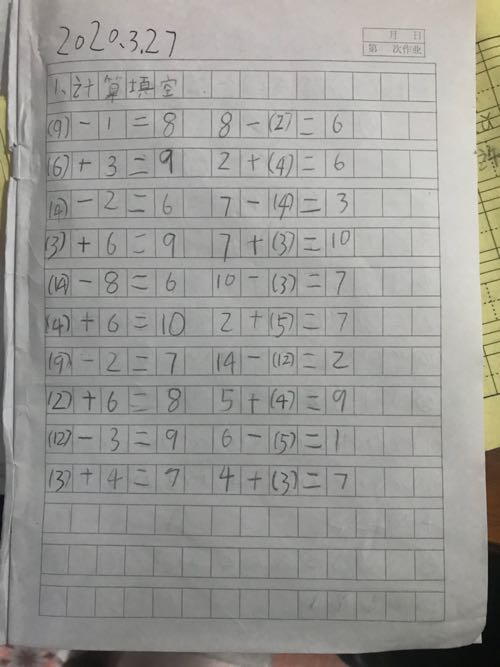 2020.3.27
月 日
第 次作业
1、计算填空
(9) - 1 = 8 8 - (2) = 6
(6) + 3 = 9 2 + (4) = 6
- 2 = 6 7 - (4) = 3
(3) + 6 = 9 7 + (3) = 10
(14) - 8 = 6 10 - (3) = 7
(4) + 6 = 10 2 + (5) = 7
(9) - 2 = 7 14 - (12) = 2
(2) + 6 = 8 5 + (4) = 9
(12) - 3 = 9 6 - (5) = 1
(3) + 4 = 7 4 + (3) = 7